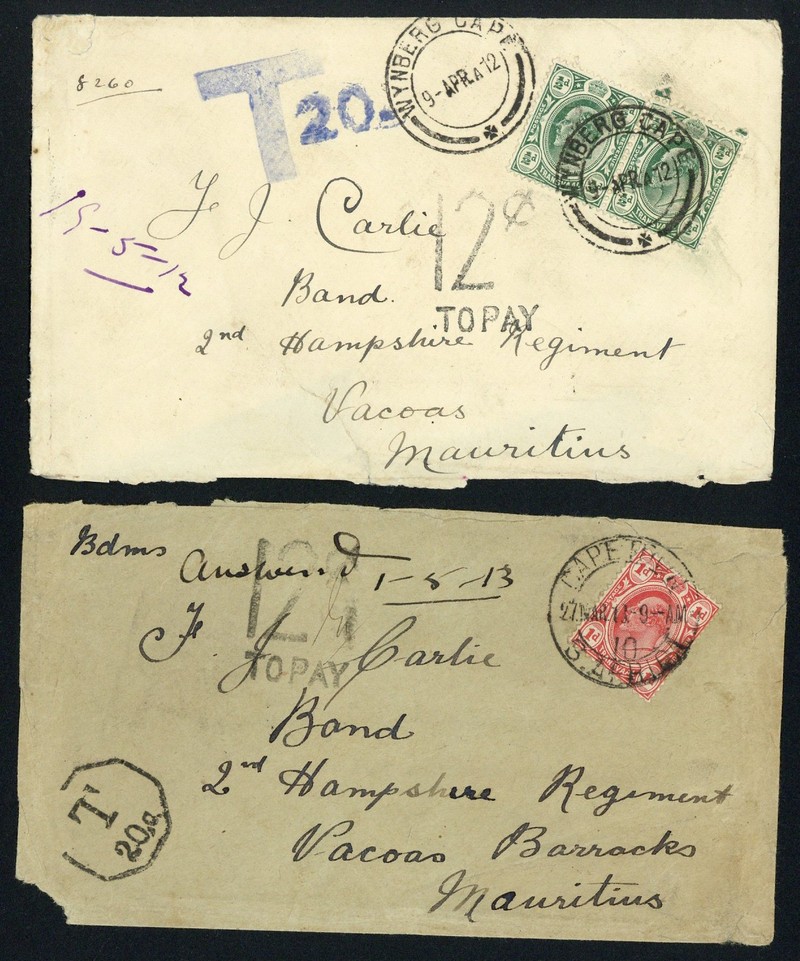 8260
T 20
WYNBERG CAPE
9-APR.A12
½d ½d
WYNBERG CAPE
9-APR.A12
15-5-12
F J Carlie
12¢
TO PAY
Band.
2nd Hampshire Regiment
Vacoas
Mauritius
Bdms
Answered 1-5-13
12¢
TO PAY
CAPE TOWN
27 MAR 9-AM
10
S. AFRICA
1d 1d
F J Carlie
Band
2nd Hampshire Regiment
T
20.c
Vacoas Barracks
Mauritius